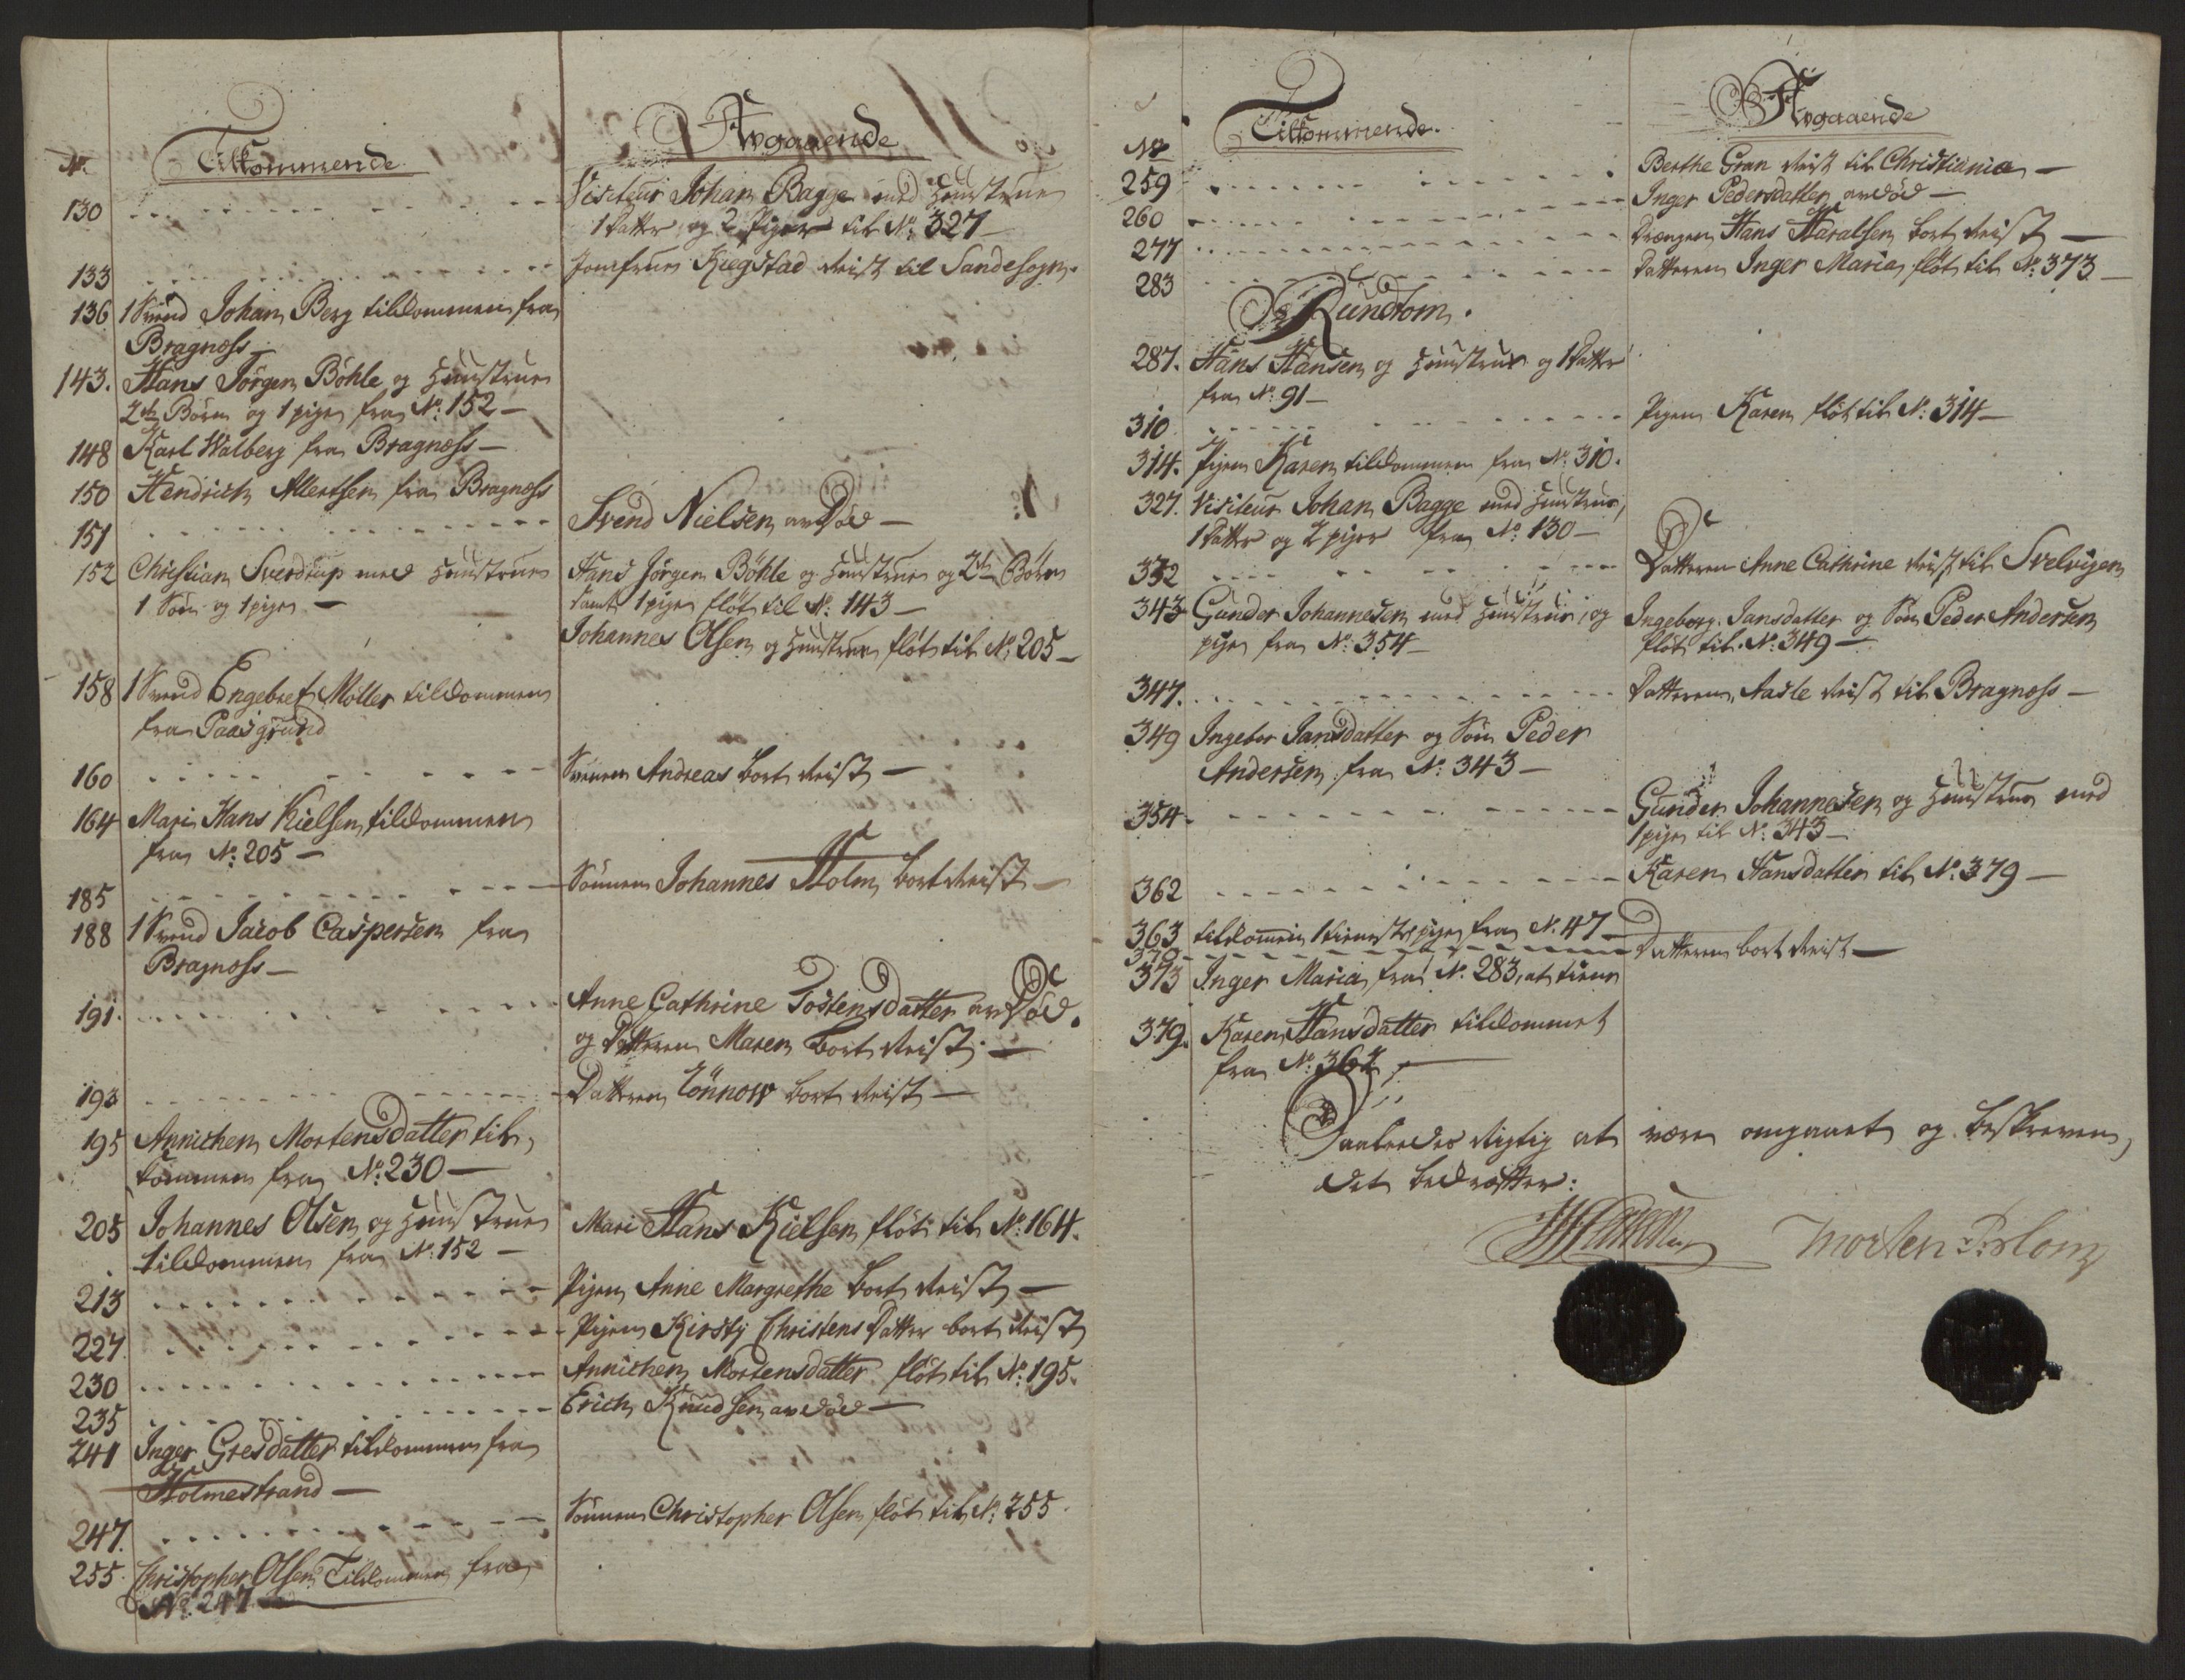 No.
Tilkommende
Afgaaende
130 Visiteur Johan Bagge med Hustrue
1 Datter og 2 Piger til No: 327
133 Jomfrue Kiegstad Reist til Sandesogn.
136 1 Svend Johan Berg tilkommen fra
Bragnæss
143. Hans Jørgen Bøhle og Hustrue
2de Børn og 1 pige fra No: 152
148 Karl Walberg fra Bragnæss
150 Hendrich Allertsen fra Bragnæss
151 Svend Nielsen avdød
152 Christian Sverdrup med Hustrue
1 Søn og 1 pige
Hans Jørgen Bøhle og Hustrue og 2de Børn
samt 1 pige fløt til No: 143
Johannes Olsen og Hustrue fløt til No: 205
158 1 Svend Engebret Møller tilkommen
fra Paasgrund
160 Svenen Andreas bort Reist
164 Mari Hans Kielsen tilkommen
fra No: 205
185 Sønnen Johannes Holm bort Reist
188 1 Svend Jacob Caspersen fra
Bragnæss
191. Anne Cathrine Tostensdatter avdød.
og Datteren Maren bort Reist.
193 Datteren Tönnow bort Reist
195 Annichen Mortensdatter til,
kommen fra No: 230
205 Johannes Olsen og Hustrue
tilkommen fra No: 152
Mari Hans Kielsen fløt til No: 164.
213 Pigen Anne Margrethe bort Reist
227. Pigen Kirsty Christens Datter bort Reist
230 Annichen Mortensdatter fløt til No: 195.
235 Erich Knudsen avdød
241 Inger Gresdatter tilkommen fra
Holmestrand
247. Sønnen Christopher Olsen fløt til No: 255
255. Christopher Olsen Tilkommen fra
No: 247
No
Tilkommende.
Afgaaende
259 Berthe Gran Reist til Christiania
260 Inger Pedersdatter avdød
277 Drængen Hans Haralsen bort Reist
283 Datteren Inger Maria fløt til No: 373
Rundtom.
287. Hans Hansen og Hustrue og 1 Datter
fra No: 91
310 Pigen Karen fløt til No: 314
314. Pigen Karen tilkommen fra No: 310.
327. Visiteur Johan Bagge med Hustrue,
1 Datter og 2 piger fra No: 130
332 Datteren Anne Cathrine Reist til Svelvigen
343 Gunder Johannesen med Hustrue, og
pige fra No: 354
Ingeborg Jansdatter og Søn Peder Andersen
fløt til No: 349
347. Datteren Aasle Reist til Bragnæss
349 Ingebor Jansdatter og Søn Peder
Andersen fra No: 343
354 Gunder Johannesen og Hustrue med
1 pige til No: 343
362 Karen Hansdatter til No: 379
363 tilkommen 1 tieneste pige fra No: 47
370 Datteren bort Reist
373 Inger Maria fra No: 283, at tiene
379. Karen Hansdatter tilkommet
fra No: 362
Saaledes Rigtig at være omgaaet og beskreven,
det bekræfter:
Morten P. Blom